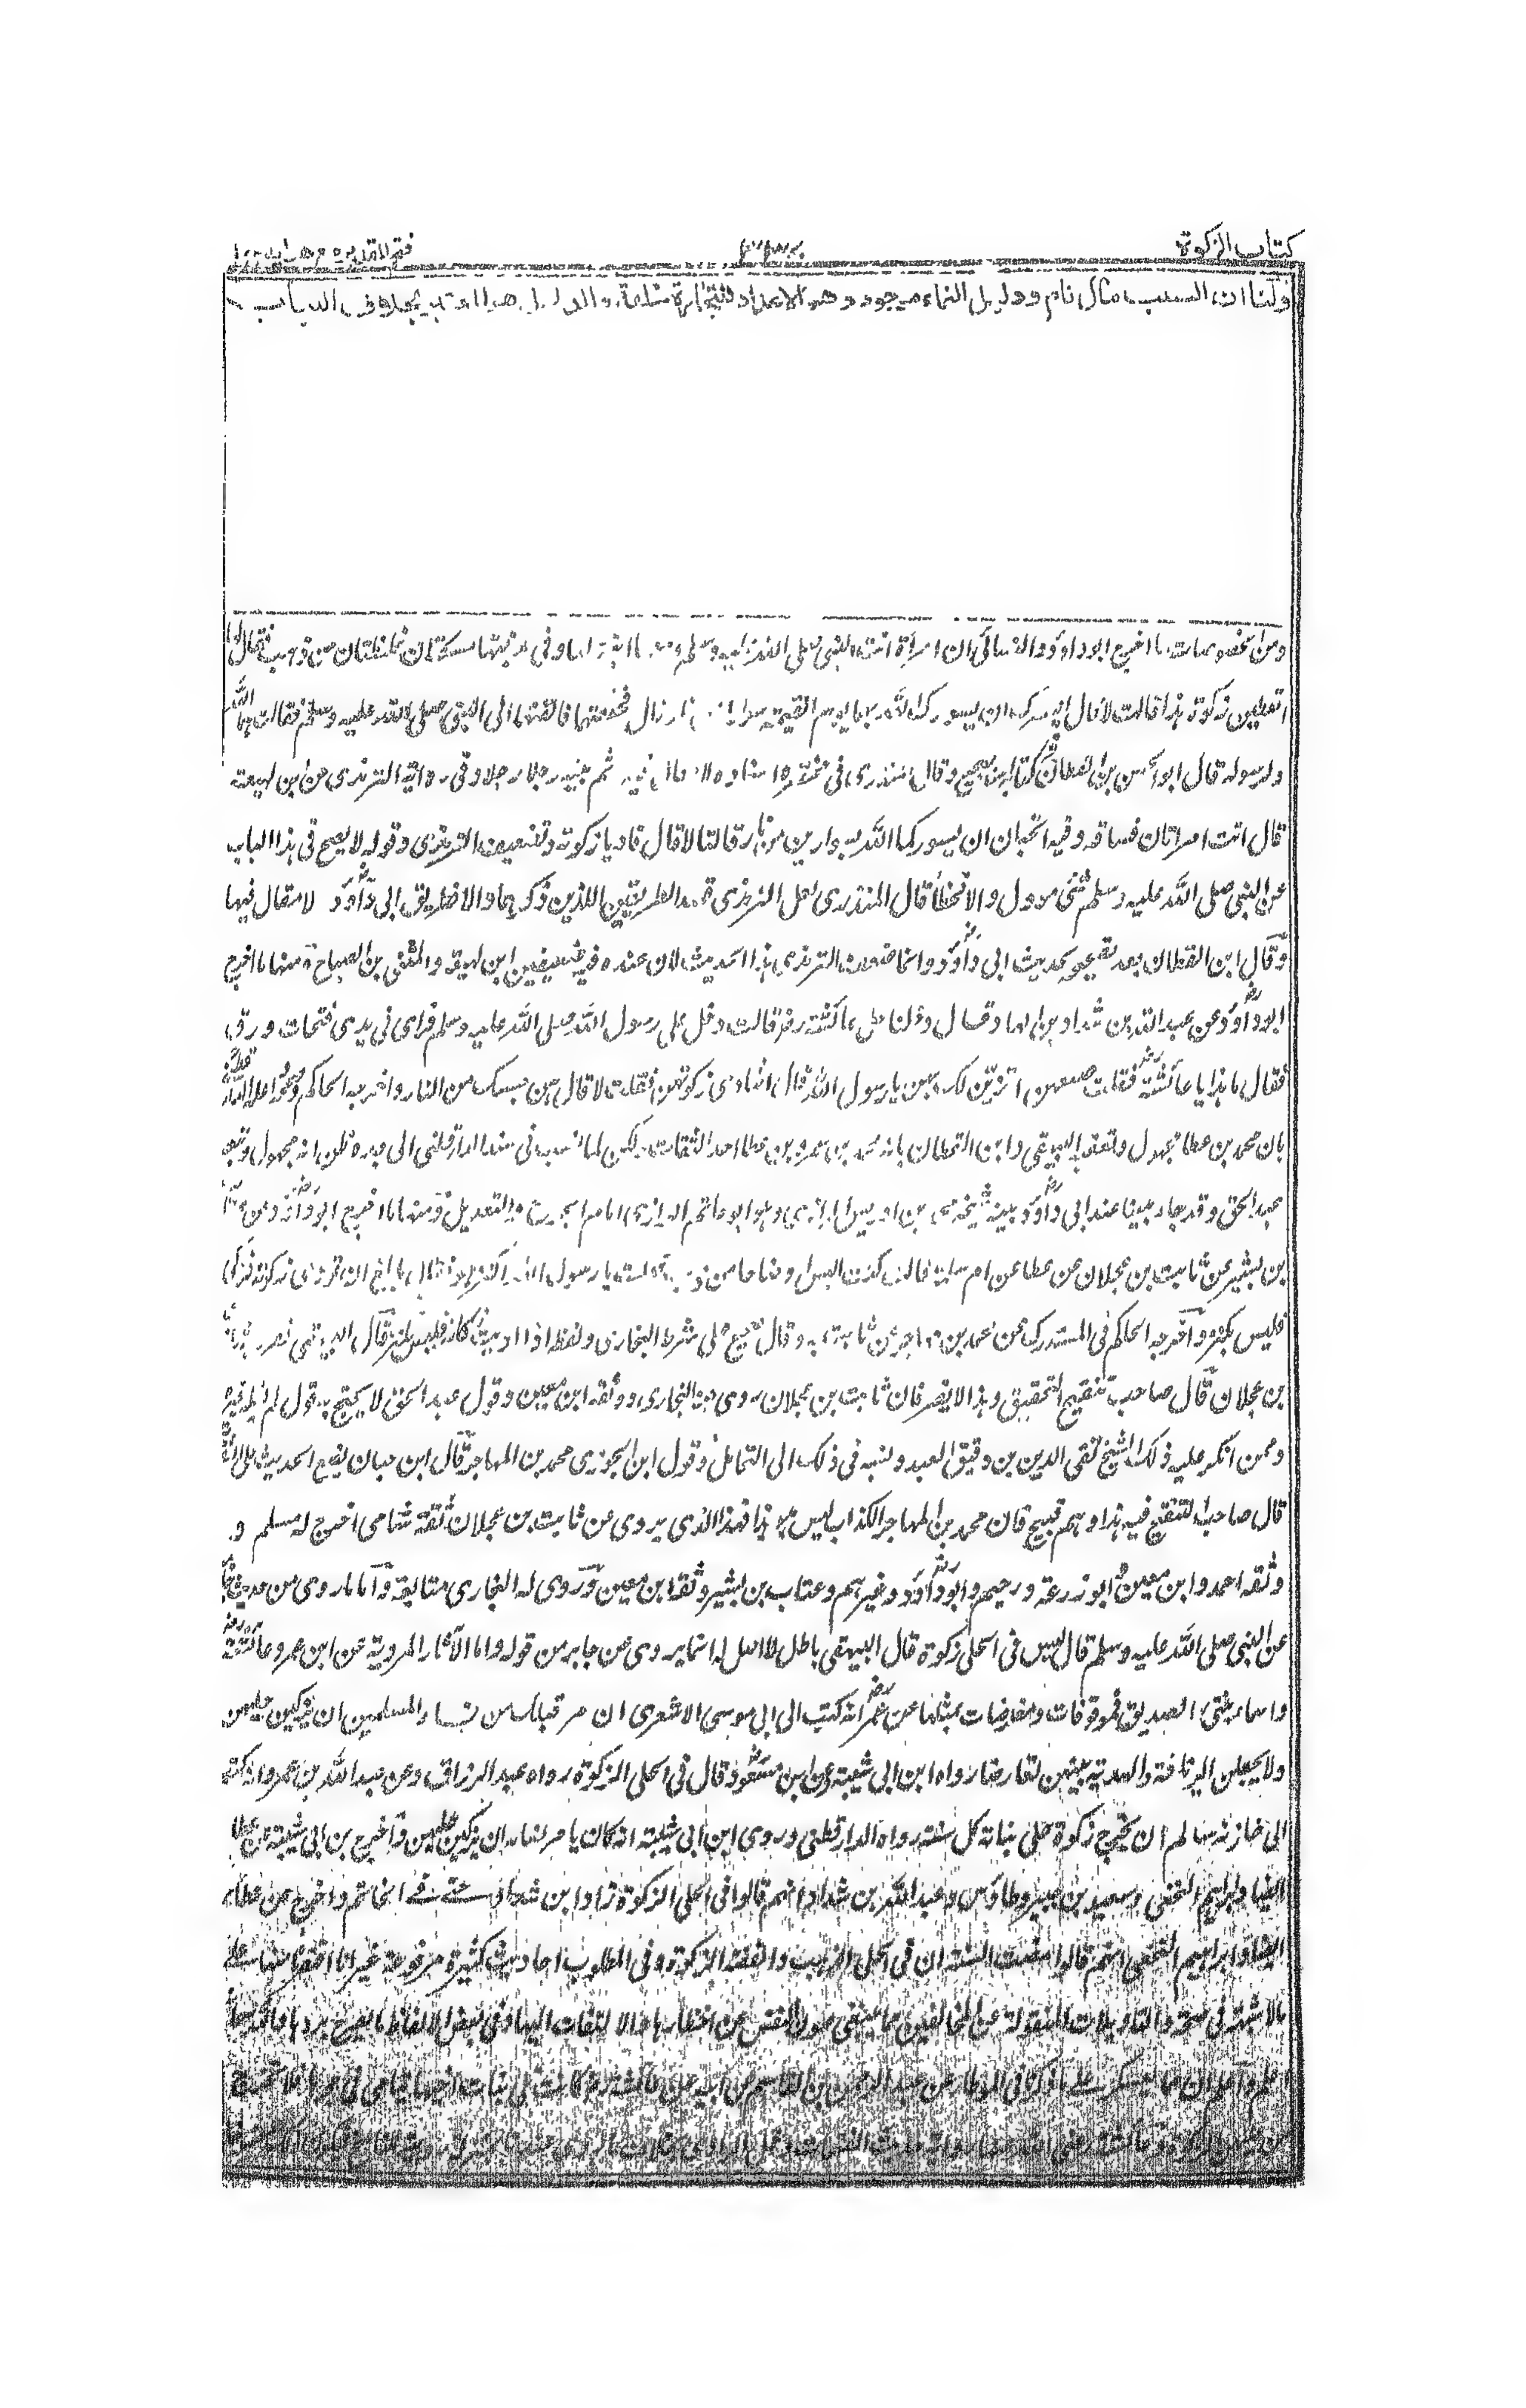 كتاب الزكوة
فتح القدير
ولنا ان السبب مال نام ودليل النماء موجود وهو الاعداد للتجارة خلقة والدليل هو المعتبر بخلاف الثياب
ومن الخصوصيات ما اخرج ابوداؤد والنسائى ان امرأة اتت النبى صلى الله عليه وسلم ومعها ابنة لها وفى يد بنتها مسكتان غليظتان من ذهب فقال لها
اتعطين زكوة هذا قالت لا قال ايسرك ان يسورك الله بهما يوم القيمة سوارين من نار قال فخلعتهما فالقتهما الى النبى صلى الله عليه وسلم فقالت هما لله
ولرسوله قال ابوالحسن بن القطان فى كتابه اسناده صحيح وقال المنذرى فى مختصره اسناده لا مقال فيه ثم بينه رجلا رجلا وفى رواية الترمذى عن ابن لهيعة
قال اتت امراتان فساقه وفيه اتحبان ان يسوركما الله بسوارين من نار قالتا لا قال فاديا زكوته وتضعيف الترمذى وقوله لا يصح فى هذا الباب
عن النبى صلى الله عليه وسلم شئ مؤول والا فخطأ قال المنذرى لعل الترمذى قصد الطريقين اللذين ذكرهما والا فطريق ابى داؤد لا مقال فيها
وقال ابن القطان بعد تصحيحه لحديث ابى داؤد وانما ضعف الترمذى هذا الحديث لان عنده فيه ضعيفين ابن لهيعة والمثنى بن الصباح ومنها ما اخرج
ابوداؤد عن عبد الله بن شداد بن الهاد قال دخلنا على عائشة رض قالت دخل على رسول الله صلى الله عليه وسلم فراى فى يدى فتخات ورق
فقال ما هذا يا عائشة فقلت صنعتهن اتزين لك بهن يا رسول الله قال افتؤدى زكوتهن فقلت لا قال هن حسبك من النار واخرجه الحاكم وصححه واعله الدارقطنى
بان محمد بن عطا مجهول وتعقبه البيهقى وابن القطان بانه محمد بن عمرو بن عطا احد الثقات ولكن لما نسب فى سند الدارقطنى الى جده ظن انه مجهول وتبعه
عبد الحق وقد جاء مبينا عند ابى داؤد بينه شيخه محمد بن ادريس الرازى وهو ابو حاتم الرازى امام الجرح والتعديل ومنها ما اخرج ابوداؤد عن عتاب
بن بشير عن ثابت بن عجلان عن عطا عن ام سلمة قالت كنت البس اوضاحا من ذهب فقلت يا رسول الله اكنز هو فقال ما بلغ ان تؤدى زكوته فزكى
فليس بكنز واخرجه الحاكم فى المستدرك عن محمد بن مهاجر عن ثابت به وقال صحيح على شرط البخارى ولفظه اذا اديت زكوته فليس بكنز قال البيهقى تفرد به ثابت
بن عجلان قال صاحب تنقيح التحقيق وهذا لا يضر فان ثابت بن عجلان روى له البخارى ووثقه ابن معين وقول عبد الحق لا يحتج به قول لم يقله غيره
وممن انكر عليه ذلك الشيخ تقى الدين بن دقيق العيد ونسبه فى ذلك الى التحامل وقول ابن الجوزى محمد بن المهاجر قال ابن حبان يضع الحديث على الثقات
قال صاحب التنقيح فيه هذا وهم قبيح فان محمد بن المهاجر الكذاب ليس هو هذا فهذا الذى يروى عن ثابت بن عجلان ثقة شامى اخرج له مسلم و
وثقه احمد وابن معين وابو زرعة ودحيم وابوداؤد وغيرهم وعتاب بن بشير وثقه ابن معين وروى له البخارى متابعة واما ما روى من حديث جابر
عن النبى صلى الله عليه وسلم قال ليس فى الحلى زكوة قال البيهقى باطل لا اصل له انما يروى عن جابر من قوله واما الآثار المروية عن ابن عمر وعائشة
واسماء بنتى الصديق فموقوفات ومعارضات بمثلها عن عمر انه كتب الى ابى موسى الاشعرى ان مر من قبلك من نساء المسلمين ان يزكين حليهن
ولا يجعلن الزيادة والهدية بينهن تقارضا رواه ابن ابى شيبة وعن ابن مسعود قال فى الحلى الزكوة رواه عبد الرزاق وعن عبد الله بن عمرو انه كتب
الى خازنه سالم ان يخرج زكوة حلى بناته كل سنة رواه الدارقطنى وروى ابن ابى شيبة انه كان يامر نساءه ان يزكين حليهن واخرج بن ابى شيبة عن عطا
ايضا وابراهيم النخعى وسعيد بن جبير وطاؤس وعبد الله بن شداد انهم قالوا فى الحلى الزكوة زاد ابن شداد حتى فى الخاتم واخرج عن عطاء
ايضا وابراهيم النخعى انهم قالوا مضت السنة ان فى الحلى الذهب والفضة الزكوة وفى المطلوب احاديث كثيرة مرفوعة غير انا اقتصرنا منها على
ما لا شبهة فى صحته والتاويلات المنقولة عن المخالفين مما ينبغى صون النفس عن اخطارها والالتفات اليها وفى بعض الالفاظ ما يصرح بردها